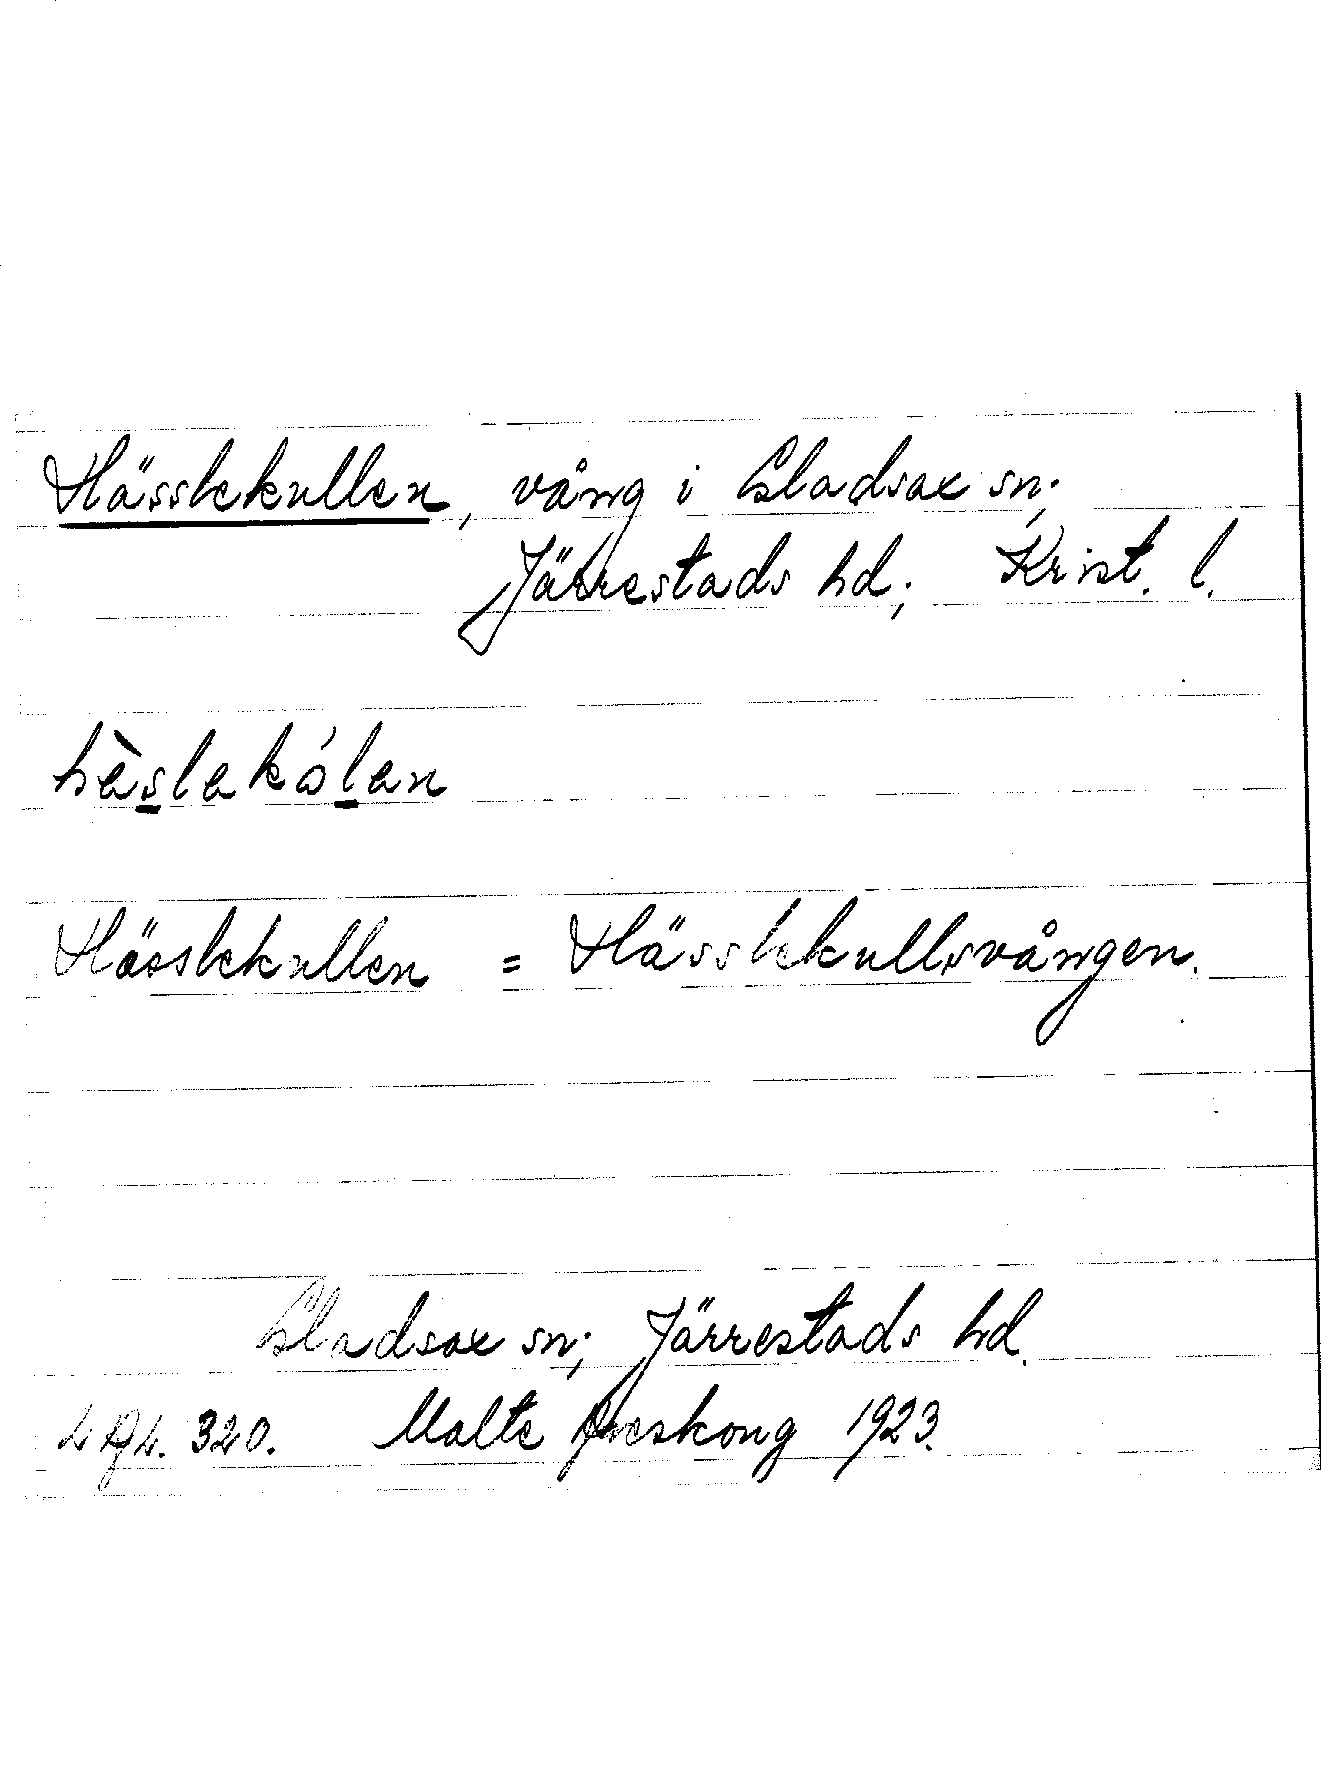 Hässlekullen, vång i Gladsax sn;
Järrestads hd; Krist. l.
hèslakólan
Hässlekullen = Hässlekullsvången.
Gladsax sn; Järrestads hd.
320. Malte 1923.